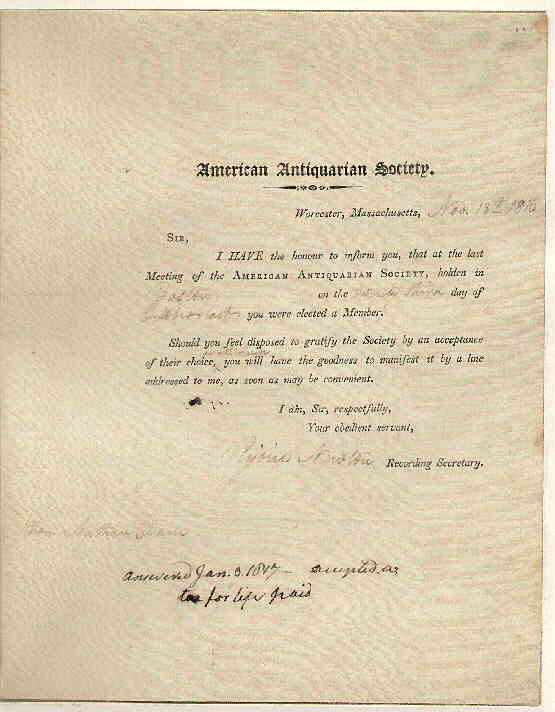 American Antiquarian Society.
Worcester, Massachusetts, Nov. 18th 1816
SIR,
I HAVE the honour to inform you, that at the last
Meeting of the AMERICAN ANTIQUARIAN SOCIETY, holden in
Boston on the third day of
you were elected a Member.
Should you feel disposed to gratify the Society by an acceptance
of their choice, you will have the goodness to manifest it by a line
addressed to me, as soon as may be convenient.
I am, Sir, respectfully,
Your obedient servant,
Rejoice Newton Recording Secretary.
answered Jan. 3. 1817 — accepted,
for life paid